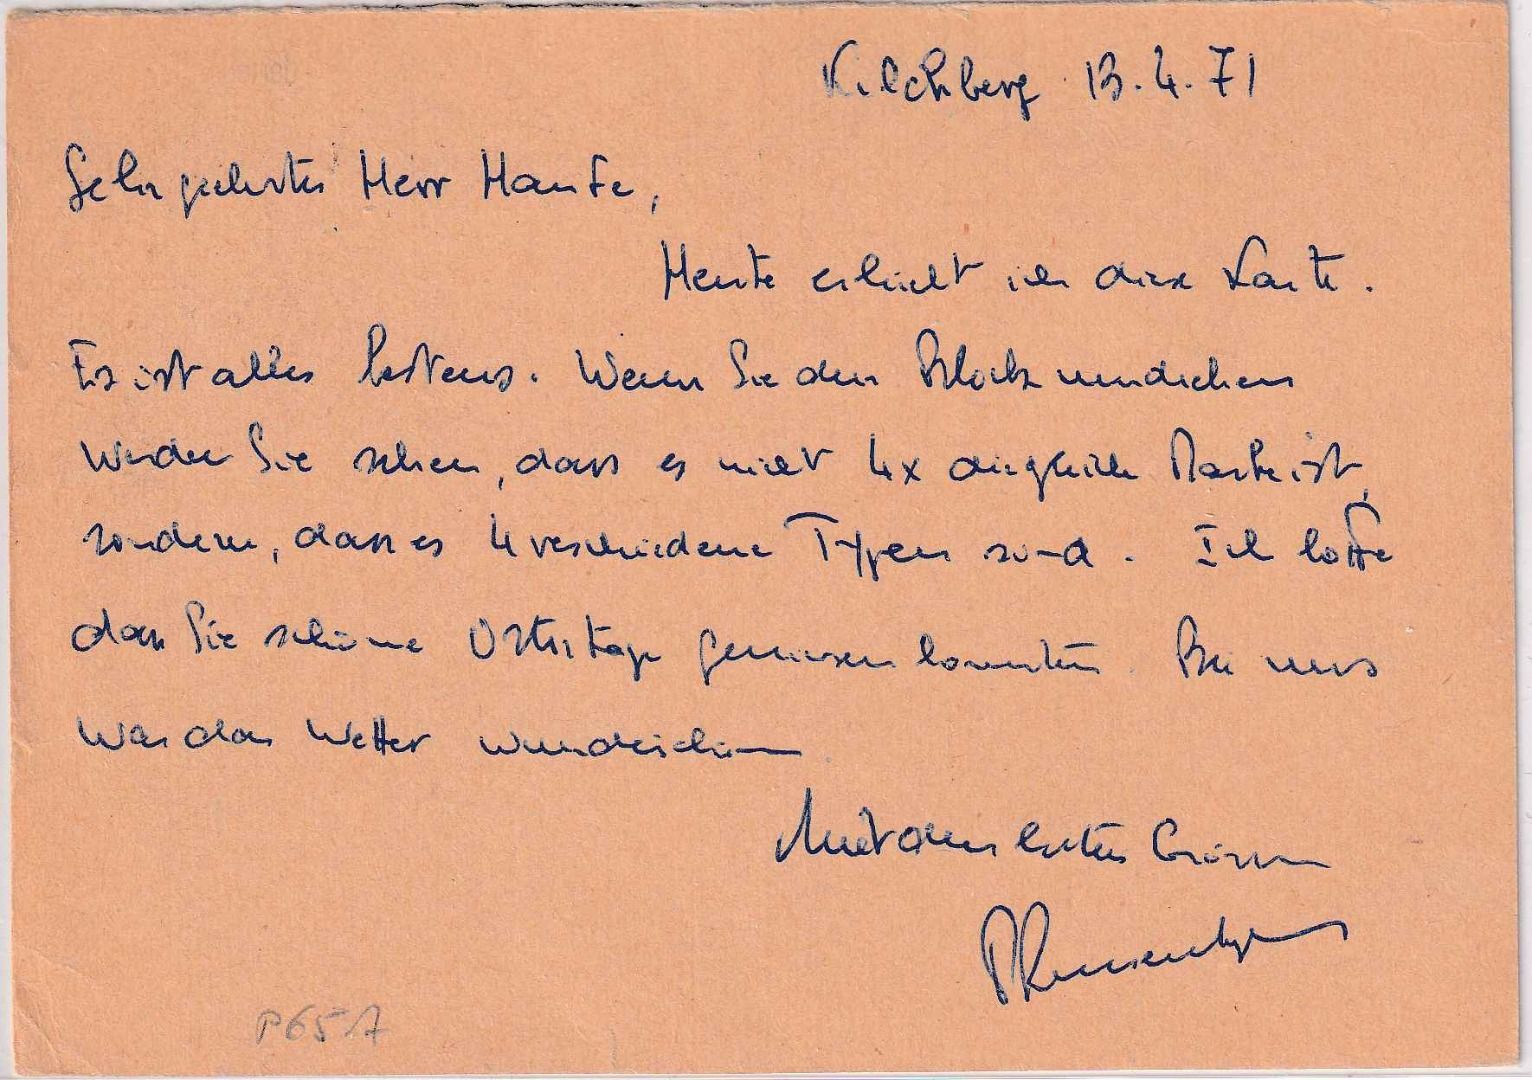 Kilchberg 13.4.71
Sehr geehrter Herr Haufe,
Heute erhielt ich diese Karte.
Es ist alles bestens. Wenn Sie den Block
werden Sie sehen, dass es nicht 4x die gleiche Marke ist,
sondern, dass es 4 verschiedene Typen sind. Ich hoffe
dass Sie schöne Ostertage geniessen konnten. Bei uns
war das Wetter wunderschön
Mit den besten Grüssen
P65A